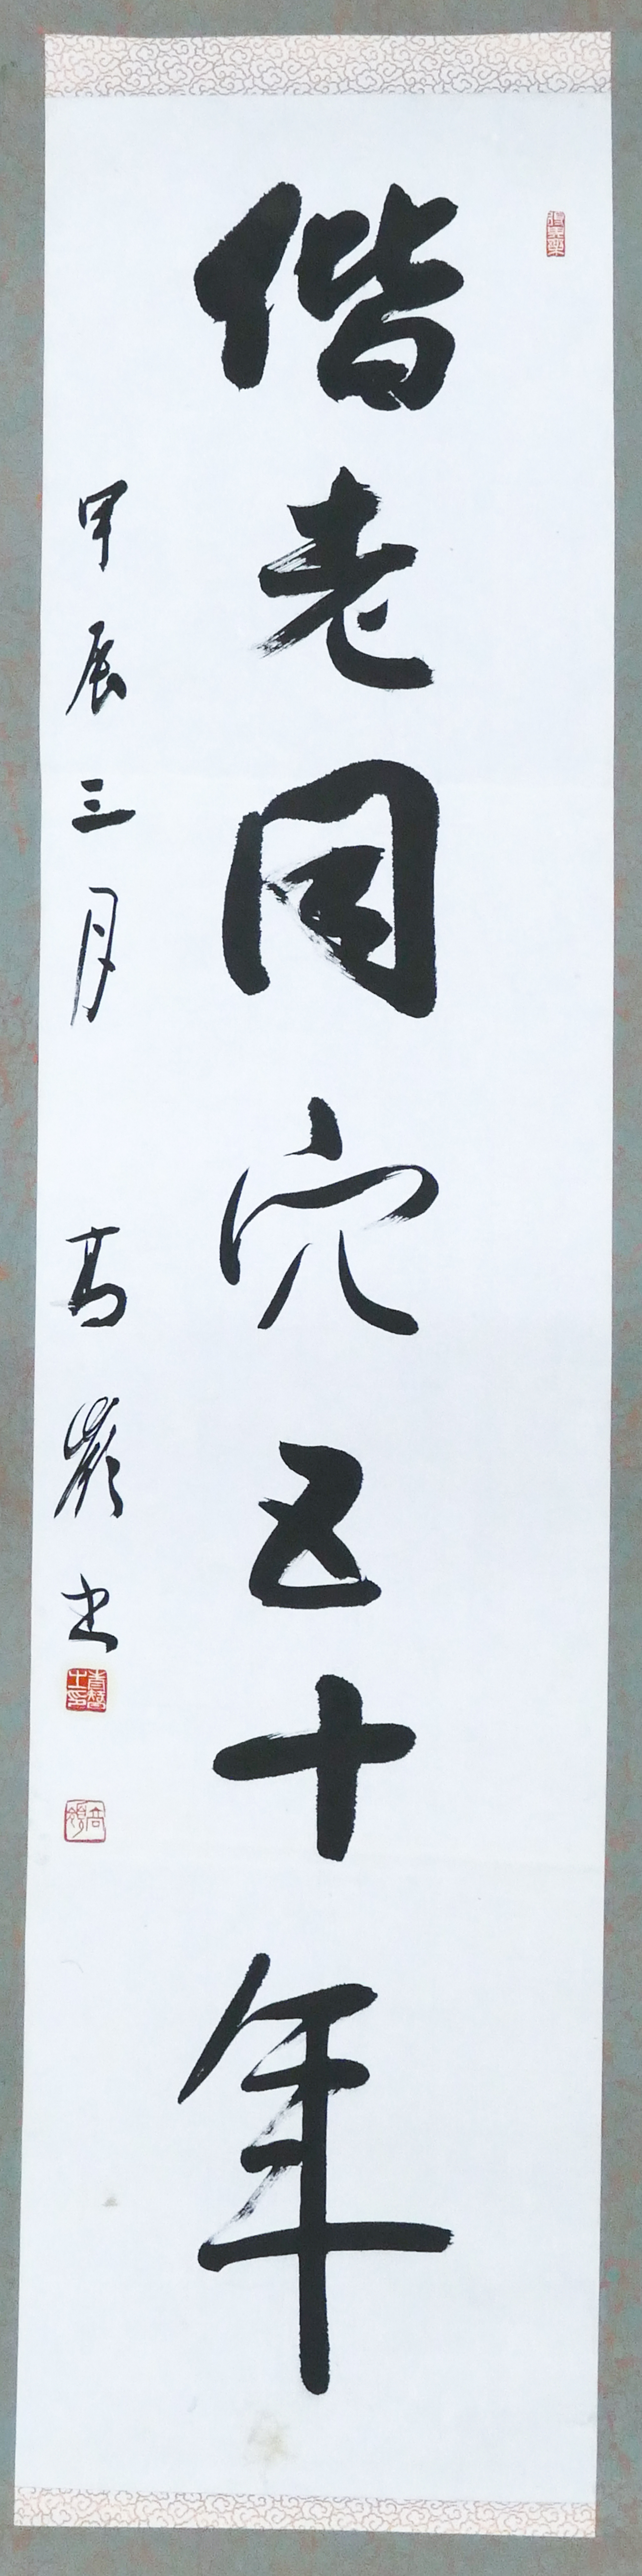 偕老同穴五十年
甲辰三月 高嶺書